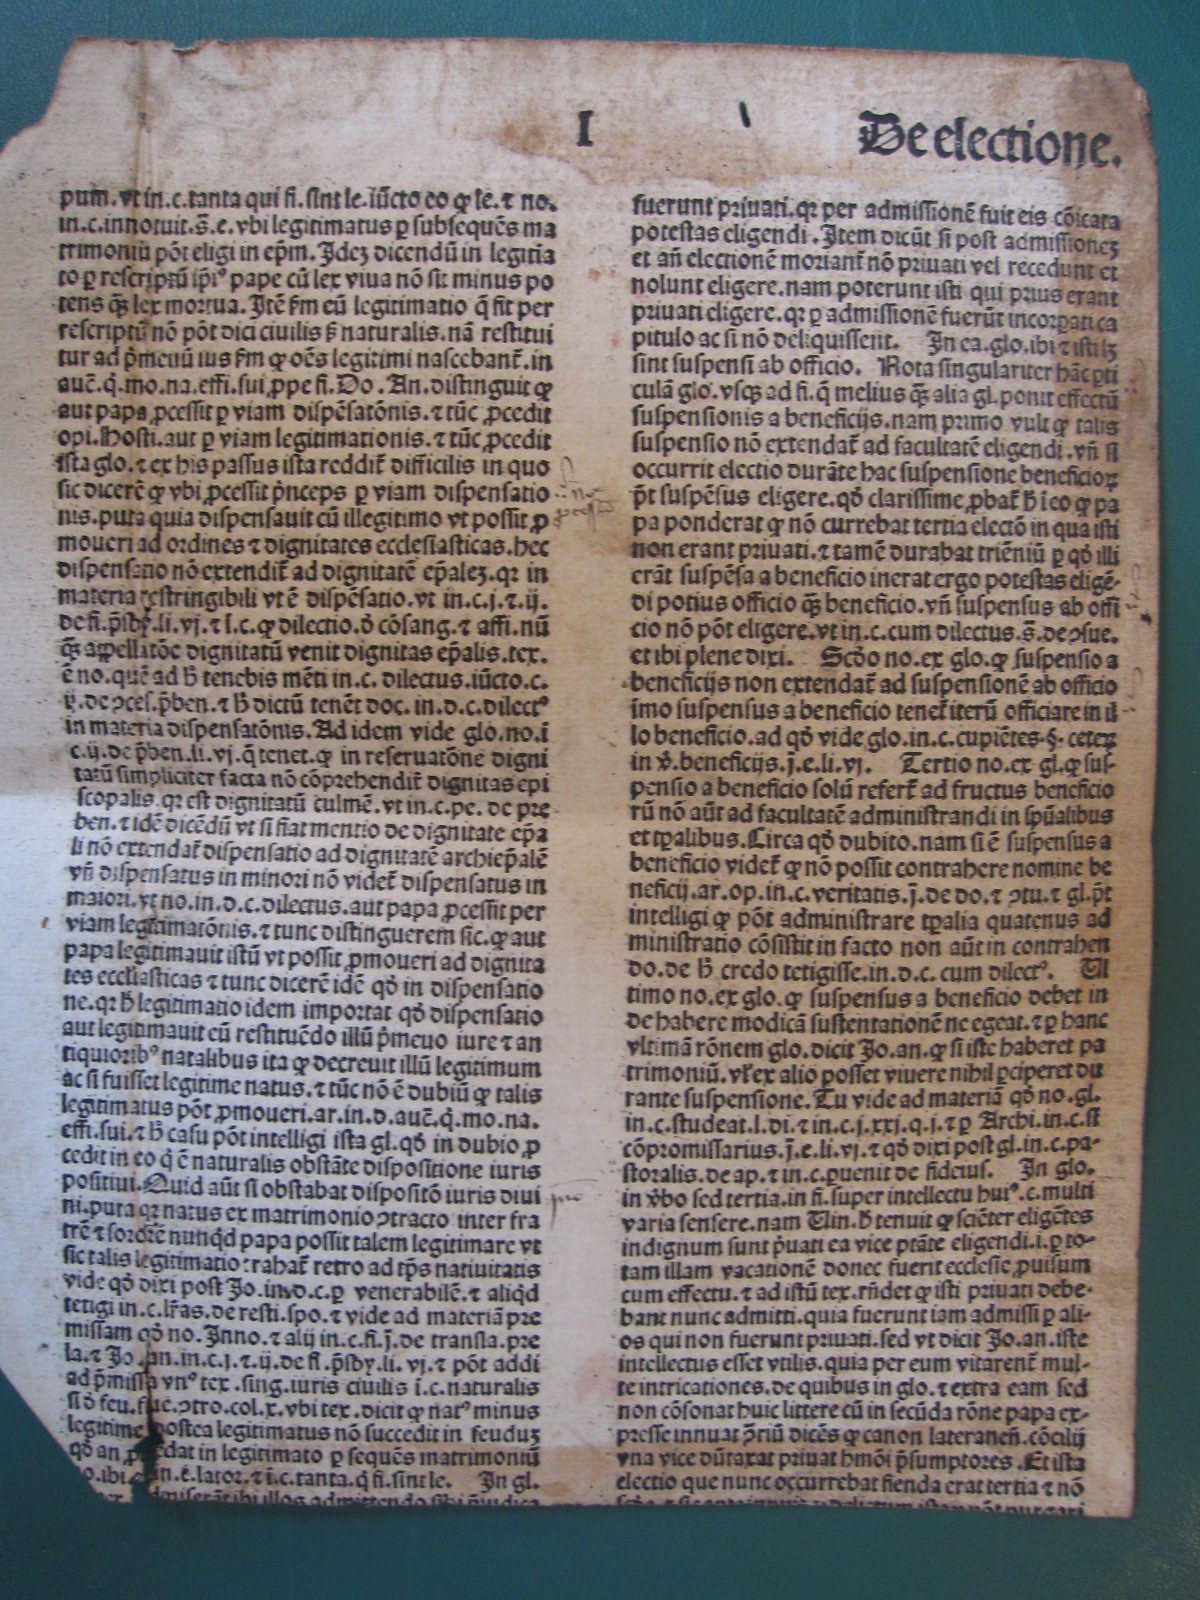 I
De electione.
pum. vt in .c. tanta qui fi. sint le. iūcto eo ꝙ le. ⁊ no.
in .c. innotuit. s̄. e. vbi legitimatus ꝑ subsequēs ma
trimoniū pōt eligi in ep̄m. Ideꝫ dicendū in legitia
to ꝑ rescriptū ip̄iꝰ pape cū lex viua nō sit minus po
tens qꝫ lex mortua. Itē km̄ eū legitimatio q̄ fit per
rescriptū nō pōt dici ciuilis sꝫ naturalis. nā restitui
tur ad p̄meuū ius km̄ ꝙ oēs legitimi nascebant̄. in
auē. q̄. mo. na. effi. sui. ꝓpe fi. Do. An. distinguit ꝙ
aut papa ꝓcessit ꝑ viam dispēsatōnis. ⁊ tūc ꝓcedit
opi. Hosti. aut ꝑ viam legitimationis. ⁊ tūc ꝓcedit
ista glo. ⁊ ex his passus ista reddit̄ difficilis in quo
sic dicerē ꝙ vbi ꝓcessit p̄nceps ꝑ viam dispensatio
nis. puta quia dispensauit cū illegitimo vt possit ꝓ
moueri ad ordines ⁊ dignitates ecclesiasticas. hec
dispensatio nō extendit̄ ad dignitatē ep̄aleꝫ. qꝛ in
materia restringibili vt ē dispēsatio. vt in .c. j. ⁊ .ij.
de fi. p̄sby. li. vj. ⁊ l. c. ꝙ dilectio. d̄ cōsang. ⁊ affi. nū
qꝫ appellatōe dignitatū venit dignitas ep̄alis. tex.
ē no. quē ad h̄ tenebis mēti in .c. dilectus. iūcto .c.
ij. de ↄces. p̄ben. ⁊ h̄ dictū tenēt doc. in .d. c. dilectꝰ
in materia dispensatōnis. Ad idem vide glo. no. ī
c. ij. de p̄ben. li. vj. q̄ tenet. ꝙ in reseruatōne digni
tatū simpliciter facta nō cōprehendit̄ dignitas epi
scopalis. qꝛ est dignitatū culmē. vt in .c. pe. de pre
ben. ⁊ idē dicēdū vt si fiat mentio de dignitate ep̄a
li nō extendat̄ dispensatio ad dignitatē archiep̄alē
vn̄ dispensatus in minori nō videt̄ dispensatus in
maiori. vt no. in .d. c. dilectus. aut papa ꝓcessit per
viam legitimatōnis. ⁊ tunc distinguerem sic. ꝙ aut
papa legitimauit istū vt possit ꝓmoueri ad dignita
tes ecclīasticas ⁊ tunc dicerē idē qd̄ in dispensatio
ne. qꝛ h̄ legitimatio idem importat qd̄ dispensatio
aut legitimauit eū restituēdo illū p̄meuo iure ⁊ an
tiquioribꝰ natalibus ita ꝙ decreuit illū legitimum
ac si fuisset legitime natus. ⁊ tūc nō ē dubiū ꝙ talis
legitimatus pōt ꝓmoueri. ar. in .d. auē. q̄. mo. na.
effi. sui. ⁊ h̄ casu pōt intelligi ista gl. qd̄ in dubio ꝓ
cedit in eo q̄ ē naturalis obstāte dispositione iuris
positiui. Quid aūt si obstabat dispositō iuris diui
ni. puta qꝛ natus ex matrimonio ↄtracto inter fra
trē ⁊ sorōrē nunqd papa possit talem legitimare vt
sic talis legitimatio trahat̄ retro ad tp̄s natiuitatis
vide qd̄ dixi post Jo. in .d. c. ꝑ venerabilē. ⁊ aliqd
tetigi in .c. lr̄as. de resti. spo. ⁊ vide ad materiā pre
missam qd̄ no. Inno. ⁊ alij in .c. fi. j̄. de transla. pre
la. ⁊ Jo. an. in .c. j. ⁊ .ij. de fi. p̄sby. li. vj. ⁊ pōt addi
ad p̄missa vnꝰ tex. sing. iuris ciuilis ī .c. naturalis
si d̄ feu. fue. ↄtro. col. x. vbi tex. dicit ꝙ natꝰ minus
legitime postea legitimatus nō succedit in feuduꝫ
qd̄ an ꝓcedat in legitimato ꝑ sequēs matrimoniū
ibi. lator. ⁊ ī .c. tanta. q̄. fi. sint le. In gl.
ibi illos admittendo sibi p̄iudica
fuerunt priuati. qꝛ per admissionē fuit eis cōicata
potestas eligendi. Item dicūt si post admissioneꝫ
et an̄ electionē moriant̄ nō priuati vel recedunt et
nolunt eligere. nam poterunt isti qui prius erant
priuati eligere. qꝛ ꝑ admissionē fuerūt incorꝑati ca
pitulo ac si nō deliquissent. In ea. glo. ibi ⁊ istilꝫ
sint suspensi ab officio. Nota singulariter hāc ꝑti
culā glo. vsqꝫ ad fi. q̄ melius qꝫ alia gl. ponit effectū
suspensionis a beneficijs. nam primo vult ꝙ talis
suspensio nō extendat̄ ad facultatē eligendi. vn̄ si
occurrit electio durāte hac suspensione beneficioꝝ
p̄t suspēsus eligere. qd̄ clarissime ꝓbat̄ h̄ ī eo ꝙ pa
pa ponderat ꝙ nō currebat tertia electō in qua isti
non erant priuati. ⁊ tamē durabat triēniū ꝑ qd̄ illi
erāt suspēsa a beneficio inerat ergo potestas eligē-
di potius officio qꝫ beneficio. vn̄ suspensus ab offi
cio nō pōt eligere. vt in .c. cum dilectus. s̄. de ↄsue.
et ibi plene dixi. Scd̄o no. ex glo. ꝙ suspensio a
beneficijs non extendat̄ ad suspensionē ab officio
īmo suspensus a beneficio tenet̄ iterū officiare in il
lo beneficio. ad qd̄ vide glo. in .c. cupiētes. §. ceteꝝ
in v̄. beneficijs. j̄. e. li. vj. Tertio no. ex gl. ꝙ sus-
pensio a beneficio solū refert̄ ad fructus beneficio
rū nō aūt ad facultatē administrandi in sp̄ualibus
et tꝑalibus. Circa qd̄ dubito. nam si ē suspensus a
beneficio videt̄ ꝙ nō possit contrahere nomine be
neficij. ar. op. in .c. veritatis. j̄. de do. ⁊ ↄtu. ⁊ gl. p̄t
intelligi ꝙ pōt administrare tꝑalia quatenus ad
ministratio cōsistit in facto non aūt in contrahen
do. de h̄ credo tetigisse. in .d. c. cum dilectꝰ. Ul
timo no. ex glo. ꝙ suspensus a beneficio debet in
de habere modicā sustentationē ne egeat. ⁊ ꝑ hanc
vltimā rōnem glo. dicit Jo. an. ꝙ si iste haberet pa
trimoniū. vl̄ ex alio posset viuere nihil ꝑciperet du
rante suspensione. Tu vide ad materiā qd̄ no. gl.
in .c. studeat. l. di. ⁊ in .c. j. xxj. q. j. ⁊ ꝑ Archi. in .c. si
cōpromissarius. j̄. e. li. vj. ⁊ qd̄ dixi post gl. in .c. pa-
storalis. de ap. ⁊ in .c. ꝑuenit de fideius. In glo.
in v̄bo sed tertia. in fi. super intellectu huiꝰ. c. multi
varia sensere. nam Uin. h̄ tenuit ꝙ sciēter eligētes
indignum sunt p̄uati ea vice ptāte eligendi. i. ꝑ to-
tam illam vacationē donec fuerit ecclesie ꝓuisum
cum effectu. ⁊ ad istū tex. rn̄det ꝙ isti priuati debe-
bant nunc admitti. quia fuerunt iam admissi ꝑ ali-
os qui non fuerunt priuati. sed vt dicit Jo. an. iste
intellectus esset vtilis. quia per eum vitarent̄ mul-
te intricationes. de quibus in glo. ⁊ extra eam sed
non cōsonat huic littere cū in secūda rōne papa ex-
presse innuat ꝯ̄riū dicēs ꝙ canon lateranen̄. cōcilij
vna vice dūtaxat priuat hmōi p̄sumptores. Et ista
electio que nunc occurrebat fienda erat tertia ⁊ nō